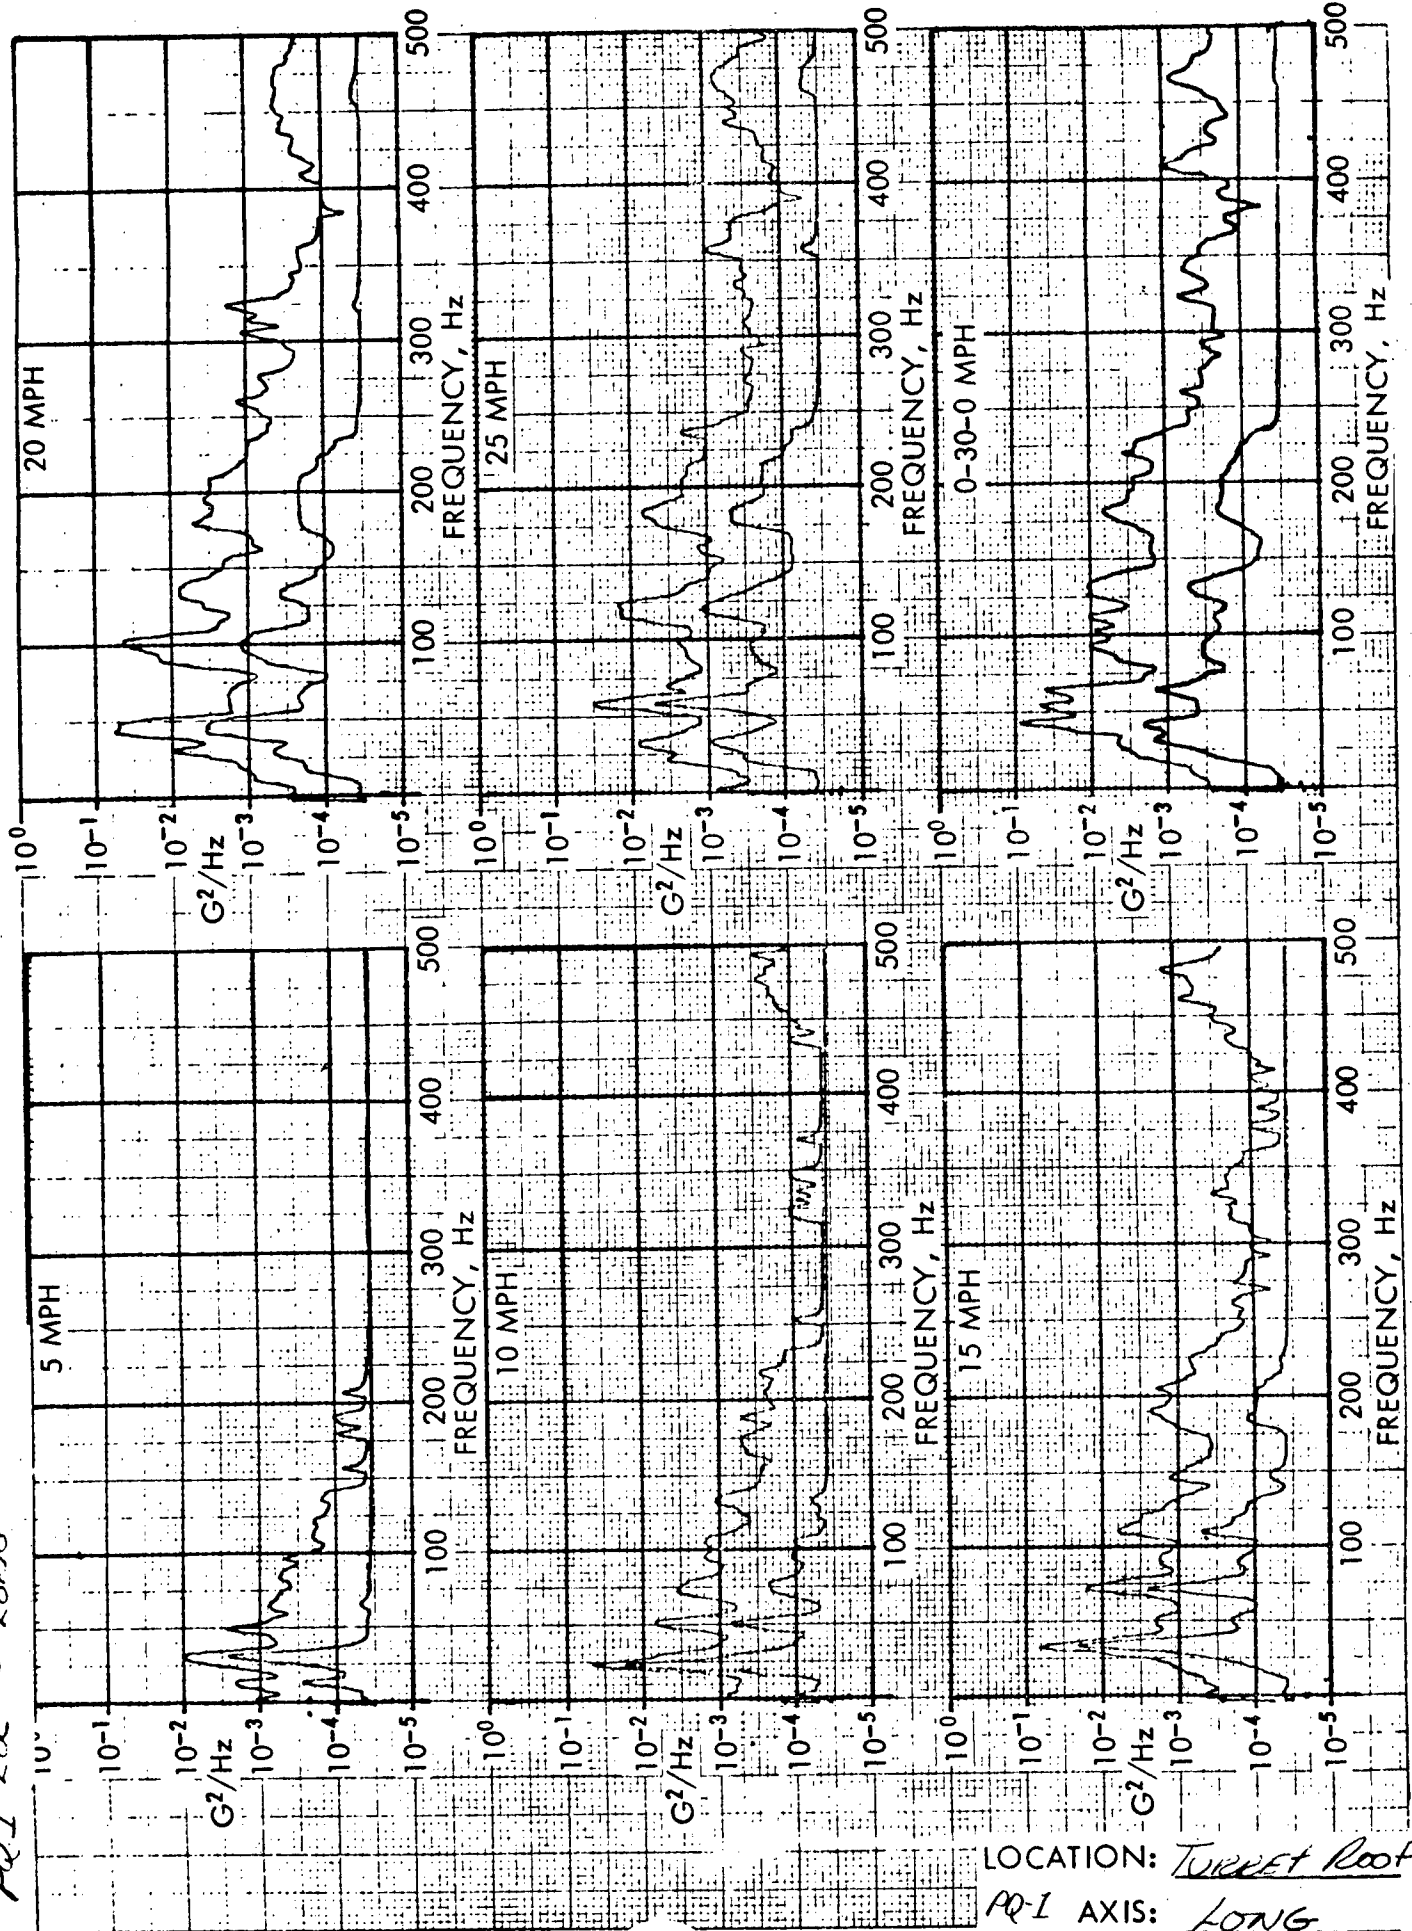 PQ-1
5 MPH
10⁻¹
10⁻²
G²/Hz
10⁻³
10⁻⁴
10⁻⁵
100 200 300 400 500
FREQUENCY, Hz
10 MPH
10⁰
10⁻¹
10⁻²
G²/Hz
10⁻³
10⁻⁴
10⁻⁵
100 200 300 400 500
FREQUENCY, Hz
15 MPH
10⁰
10⁻¹
10⁻²
G²/Hz
10⁻³
10⁻⁴
10⁻⁵
100 200 300 400 500
FREQUENCY, Hz
20 MPH
10⁰
10⁻¹
10⁻²
G²/Hz
10⁻³
10⁻⁴
10⁻⁵
100 200 300 400 500
FREQUENCY, Hz
25 MPH
10⁰
10⁻¹
10⁻²
G²/Hz
10⁻³
10⁻⁴
10⁻⁵
100 200 300 400 500
FREQUENCY, Hz
0-30-0 MPH
10⁰
10⁻¹
10⁻²
G²/Hz
10⁻³
10⁻⁴
10⁻⁵
100 200 300 400 500
FREQUENCY, Hz
LOCATION: TURRET ROOF
PQ-1 AXIS: LONG